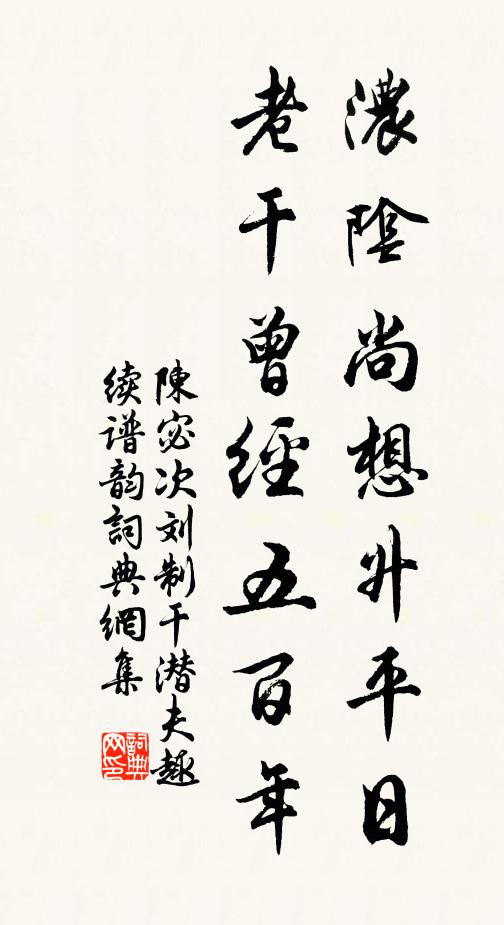 濃陰尚想升平日
老干曾經五百年
陳宓次刘制干潜夫趣
续谱韵詞典網集
詞典网印